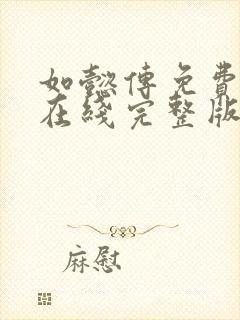 如懿傳免費
在綫完整版
麻慰